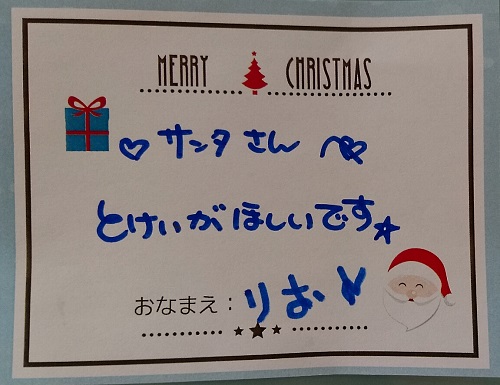 MERRY CHRISTMAS
♡サンタさん へ♡
とけいがほしいです☆
おなまえ：りお